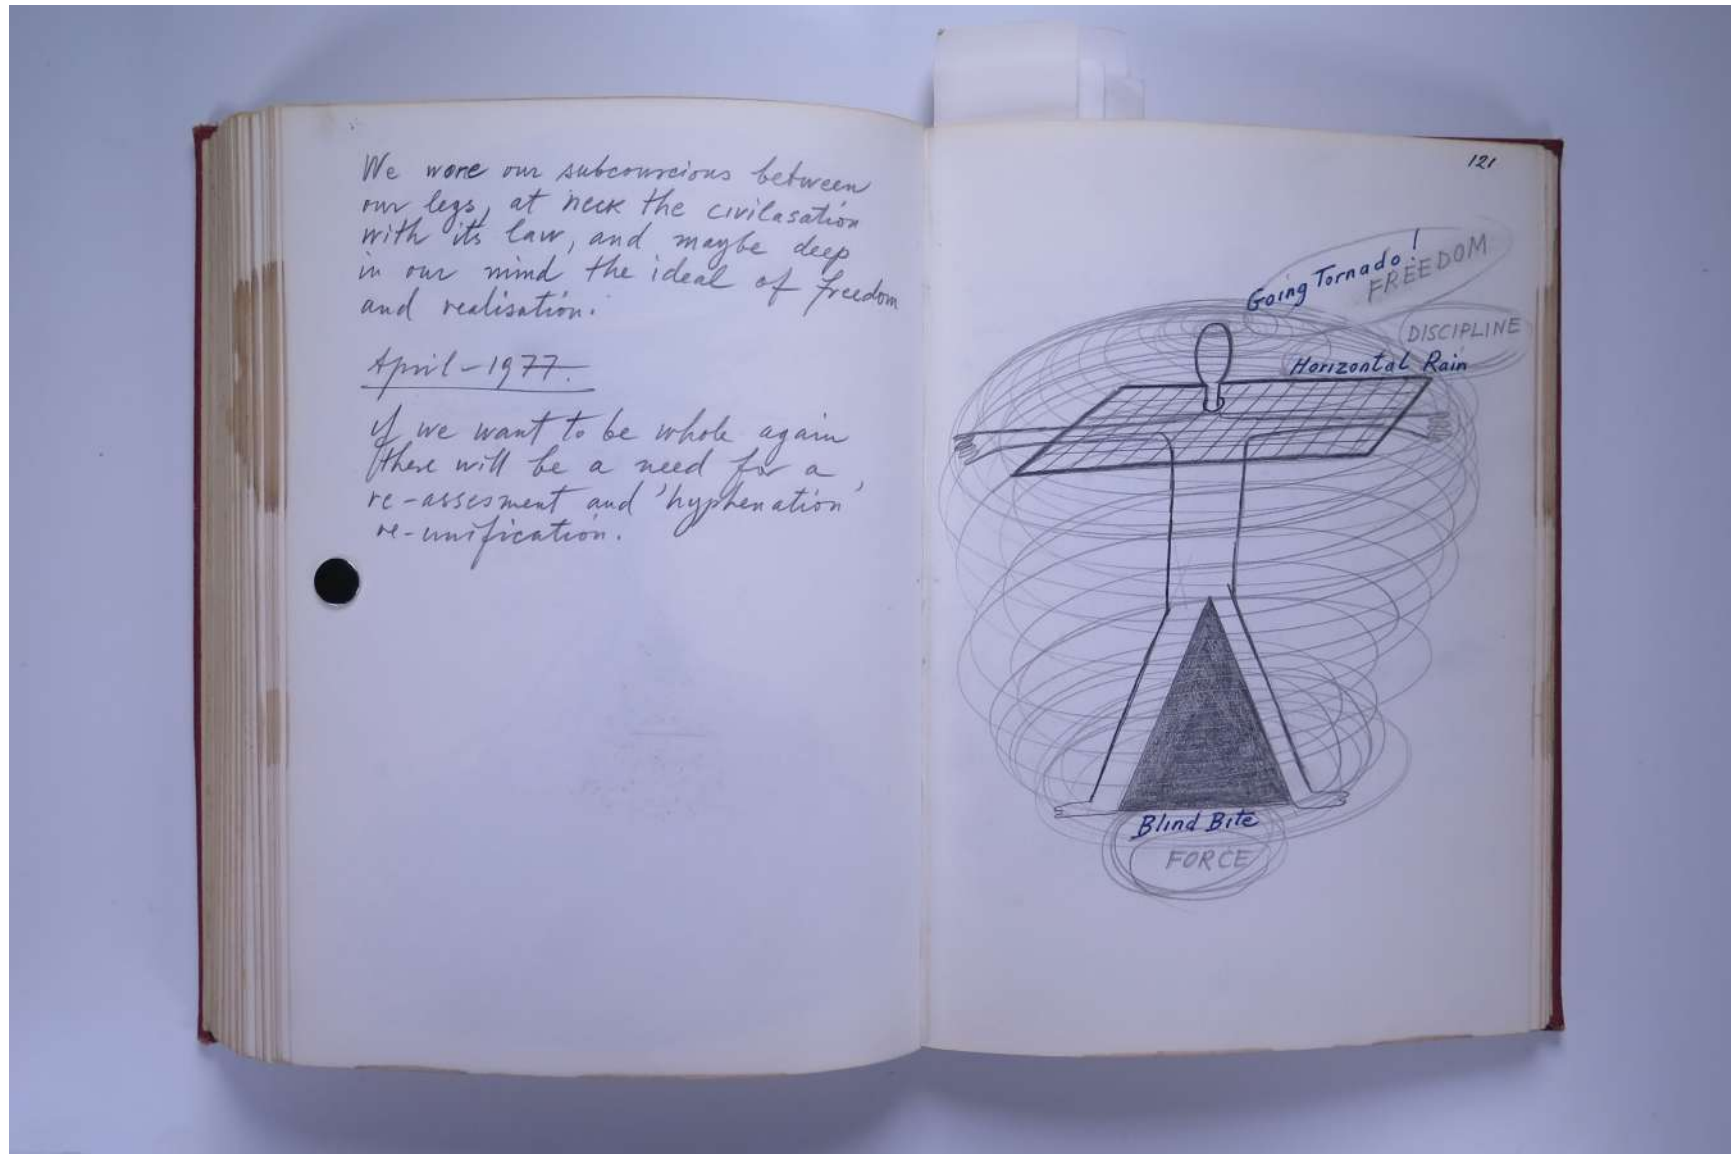 We wore our subcouscious between
our legs, at neck the civilasation
with its law, and maybe deep
in our mind the ideal of freedom
and realisation.
April - 1977.
if we want to be whole again
there will be a need for a
re-assesment and 'hyphenation'
re-unification.
121
Going Tornado!
FREEDOM
DISCIPLINE
Horizontal Rain
Blind Bite
FORCE